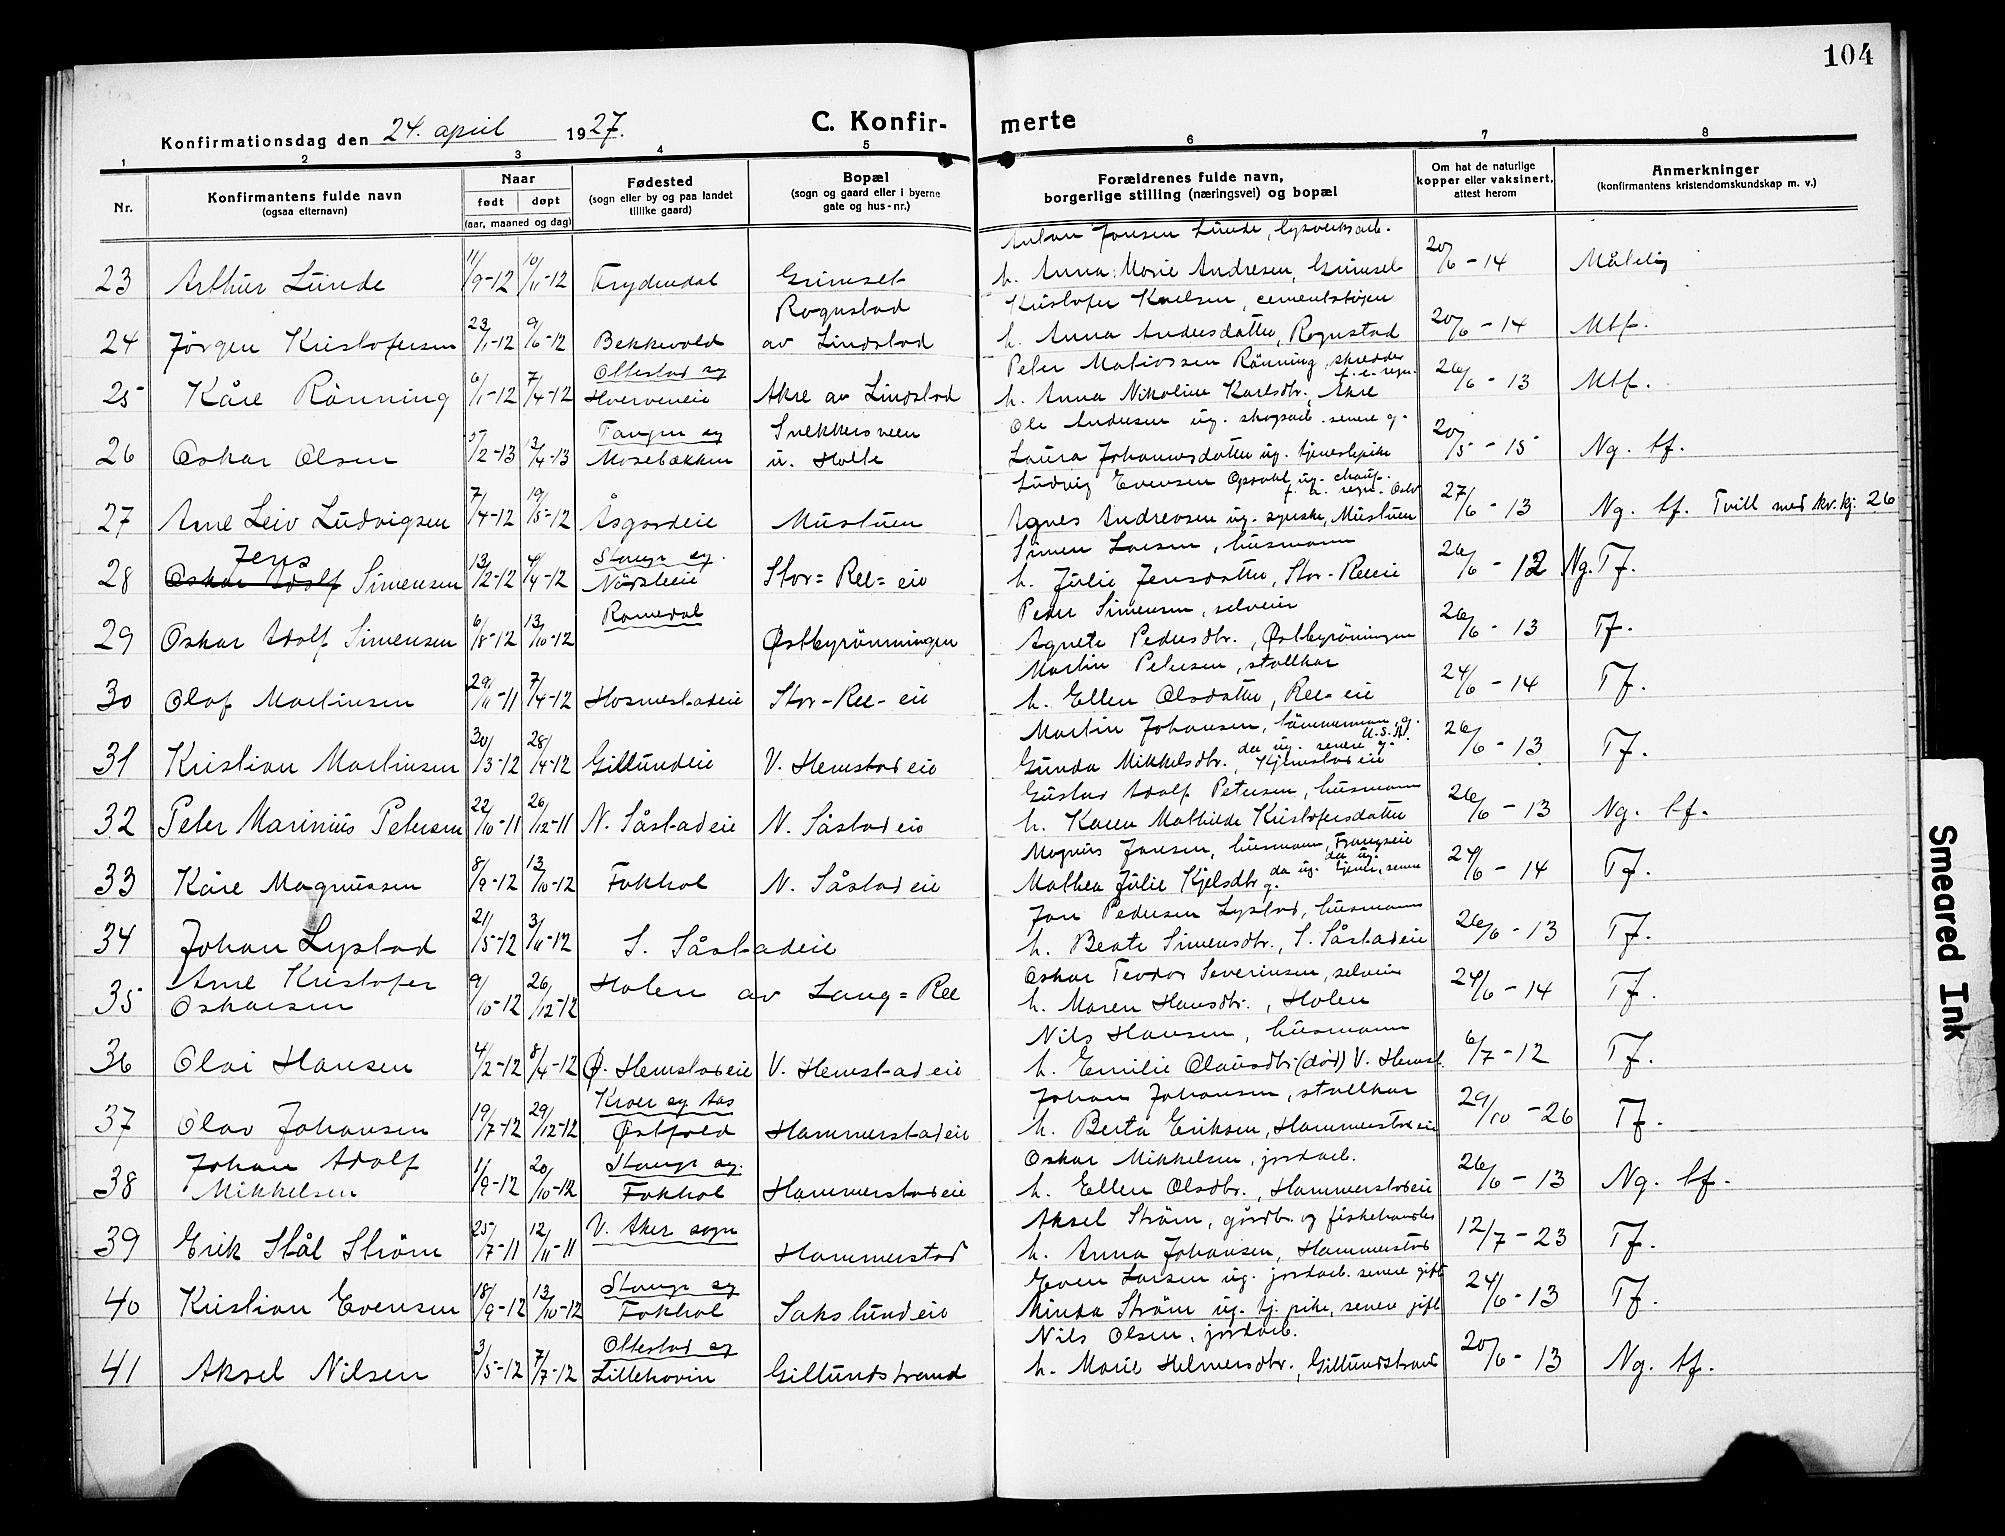 104
Konfirmationsdag den 24. april 1927.
C. Konfirmerte
1 2 3 4 5 6 7 8
Nr.
Konfirmantens fulde navn
(ogsaa efternavn)
Naar
født døpt
(aar, maaned og dag)
Fødested
(sogn eller by og paa landet
tillike gaard)
Bopæl
(sogn og gaard eller i byerne
gate og hus-nr.)
Forældrenes fulde navn,
borgerlige stilling (næringsvei) og bopæl
Om hat de naturlige
kopper eller vaksinert,
attest herom
Anmerkninger
(konfirmantens kristendomskundskap m. v.)
Anton Jonsen Lunde, lysverksarb.
23 Arthur Lunde 11/9-12 10/11-12 Frydendal Grimset h. Anna Marie Andresen, Grimset 20/6-14 Måtelig
Rognstad Kristofer Karlsen, cementstøper
24 Jörgen Kristofersen 23/1-12 9/6-12 Bekkevold av Lindstad h. Anna Andersdatter, Rognstad 20/6-14 Mtf.
Ottestad sg Peter Matiassen Rönning, skredder
25 Kåre Rönning 6/1-12 7/4-12 Hverveneie Akre av Lindstad h. Anna Nikoline Karlsdtr., Akre 26/6-13 Mtf.
Tangen sg Snekkersveen Ole Andersen ug. skogsarb. senere g.
26 Oskar Olsen 5/2-13 13/4-13 Mosebækken u. Holte Laura Johannesdatter ug. tjenestepike 20/5-15 Ng. tf.
Ludvig Evensen Opsahl ug. chauf.
27 Arne Leiv Ludvigsen 7/4-12 19/5-12 Åsgardeie Mustuen Agnes Andreasen ug. syerske, Mustuen 27/6-13 Ng. tf. Tvill med kv.kj. 26
Jens Stange sg. Simen Larsen, husmann
28 Oskar Adolf Simensen 13/2-12 4/4-12 Nörsteie Stor=Ree=eie h. Julie Jensdatter, Stor-Reeeie 26/6-12 Ng. Tf.
Romedal Peder Simensen, selveier
29 Oskar Adolf Simensen 6/8-12 13/10-12 Østbyrönningen Agnete Pedersdtr., Østbyröningen 26/6-13 Tf.
Martin Petersen, stallkar
30 Olaf Martinsen 29/11-11 7/4-12 Hosmestadeie Stor-Ree-eie h. Ellen Olsdatter, Ree-eie 24/6-14 Tf.
Martin Johansen, tömmerman, g. U.S.A.
31 Kristian Martinsen 30/3-12 28/4-12 Gillundeie V. Hemstadeie Gunda Mikkelsdtr. da ug. senere g. Hjemstadeie 26/6-13 Tf.
Gustav Adolf Petersen, husmann
32 Peter Marinius Petersen 22/10-11 26/12-11 N. Såstadeie N. Såstadeie h. Karen Mathilde Kristofersdatter 26/6-13 Ng. tf.
Magnus Jansen, husmann, da ug.
33 Kåre Magnussen 8/9-12 13/10-12 Fokhol N. Såstadeie Mathea Julie Kjelsdtr da ug. tjener, senere g. 24/6-14 Tf.
Jon Pedersen Lystad, husmann
34 Johan Lystad 21/5-12 3/11-12 S. Såstadeie h. Beate Simensdtr., S. Såstadeie 26/6-13 Tf.
Arne Kristofer Oskar Teodor Severinsen, selveier
35 Oskarsen 9/10-12 26/12-12 Holen av Lang=Ree h. Maren Hansdtr., Holen 24/6-14 Tf.
Nils Hansen, husmann
36 Olai Hansen 4/2-12 8/4-12 Ø. Hemstadeie V. Hemstadeie h. Emilie Olausdtr (död) V. Hemst. 6/7-12 Tf.
Kroer sg Aas Johan Johansen, stallkar
37 Olav Johansen 19/7-12 29/12-12 Østfold Hammerstadeie h. Berta Eriksen, Hammerstadeie 29/10-26 Tf.
Johan Adolf Stange sg. Oskar Mikkelsen, jordarb.
38 Mikkelsen 1/9-12 20/10-12 Fokhol Hammerstadeie h. Ellen Olsdtr., Hammerstadeie 26/6-13 Ng. tf.
V. Aker sogn Aksel Ström, gårdbr. og fiskehandler
39 Erik Stål Ström 25/7-11 12/11-11 Hammerstad h. Anna Johansen, Hammerstad 12/7-23 Tf.
Stange sg Even Larsen ug. jordarb. senere gift
40 Kristian Evensen 18/9-12 13/10-12 Fokhol Sakslundeie Minda Ström ug. tj. pike, senere gift 24/6-13 Tf.
Ottestad sg Nils Olsen, jordarb.
41 Aksel Nilsen 3/5-12 7/7-12 Lillehovin Gillundstrand h. Marie Helmersdtr., Gillundstrand 20/6-13 Ng. tf.
Smeared Ink